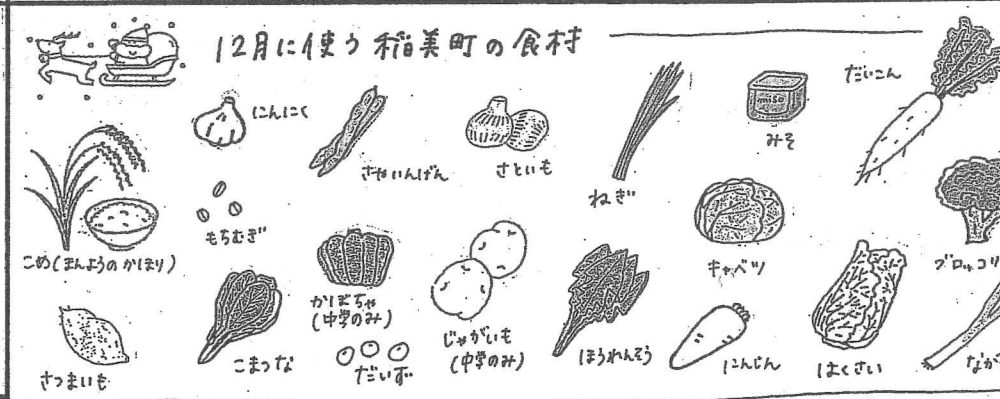 12月に使う稲美町の食材
にんにく
さやいんげん
さといも
ねぎ
miso
みそ
だいこん
こめ(まんようのかほり)
もちむぎ
かぼちゃ
(中学のみ)
じゃがいも
(中学のみ)
キャベツ
ブロッコリ
さつまいも
こまつな
だいず
ほうれんそう
にんじん
はくさい
なが